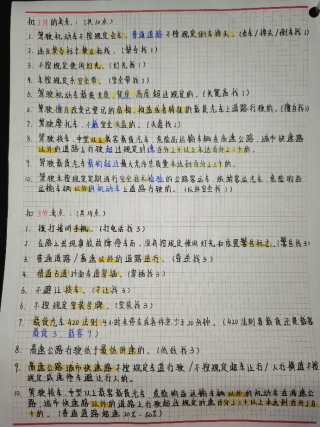 扣1分的考点：（共10点）
1. 驾驶机动车不按规定会车，普通道路不按规定倒车掉头。（会车/掉头/倒车找1）
2. 违反禁令标
3. 不按规定使用灯光。（灯光找1）
4. 车按规定系安全带。（安全带找1）
5. 驾驶机动车载货长度、宽度、高度超过规定的。
6. 驾驶擅自改变已登记的结构、构造或者特征的载货汽车上道路行驶的。（擅自找1）
7. 驾驶摩托车，不戴安全头盔的。（头盔找1）
8. 驾驶校车、中型以上载客载货汽车、危险品运输车辆在高速公路、城市快速路
以外的道路上行驶超过规定时速百分之十以上未达到百分之二十的。
9. 驾驶载货汽车载物超过最大允许总质量未达到百分之三十的。
10. 驾驶未按规定定期进行安全技术检验的公路客运汽车、旅游客运汽车、危险物品
运输车辆以外的机动车上道路行驶的。（以外安全找1）
扣3分考点：（共10点）
1. 拨打接听手机。（打电话找3）
2. 在路上出现事故故障停车后，没有按规定使用灯光和放置警告标志。（警告找3）
3. 普通道路/高速以外的道路逆行。（逆行找3）
4. 借道占道对面车道穿插。（穿插找3）
5. 不避让校车。（不让找3）
6. 不按规定安装号牌。（安装找3）
7. 载货汽车420法则 4小时未停车或者休息少于20分钟。（420法则看载货还是载客
载货3，载客9）
8. 高速公路行驶低于最低时速的。（低救找3）
9. 高速公路城市快速路不按规定车道行驶/不按规定超车让行/人行横道不按
规定减速停车避让行人的。
10. 驾驶校车、中型以上载客载货汽车、危险物品运输车辆以外的机动车在高速公
路、城市快速路以外的道路上行驶超过规定时速百分之二十以上未达到百分之五
十的。（普通道路超速20%-50%）